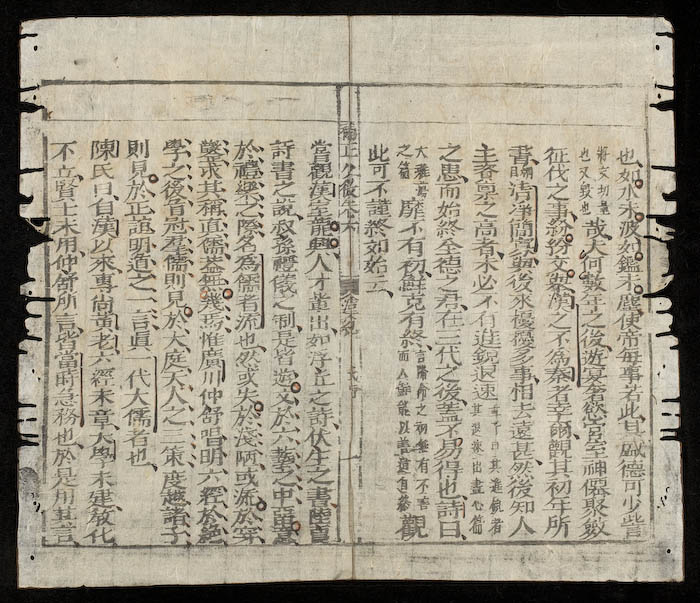 也如水未波如鑑未塵使帝每事若此其盛德可少訾
將文切量也又毀也哉夫何數年之後遊宴奢慾宮室神僊聚斂
征伐之事紛紛交集漢之不為秦者幸爾觀其初年所
書綱目清淨簡寡與後來擾擾多事相去遠甚然後知人
主資稟之高者未必不有進銳退速孟子曰其進銳者其退速出盡心篇
之患而始終全德之君在三代之後蓋不易得也詩曰
大雅蕩之篇靡不有初鮮克有終言降命之初無有不善而人鮮能以善道自終觀
此可不謹終如始云
卷六
嘗觀漢室龍興人才輩出如浮丘之詩伏生之書陸賈
詩書之說叔孫禮儀之制是皆遊文於六藝之中留意
於禮樂之際名為儒者流也然或失於淺陋或流於穿
鑿求其稱真儒蓋無幾焉惟廣川仲舒唱明六經於絶
學之後首冠羣儒則見於大庭天人之三策度越諸子
則見於正誼明道之一言眞一代大儒者也
陳氏曰自漢以來專尚黃老六經未章大學未建敎化
不立賢士未用仲舒所言皆當時急務也於是用其言